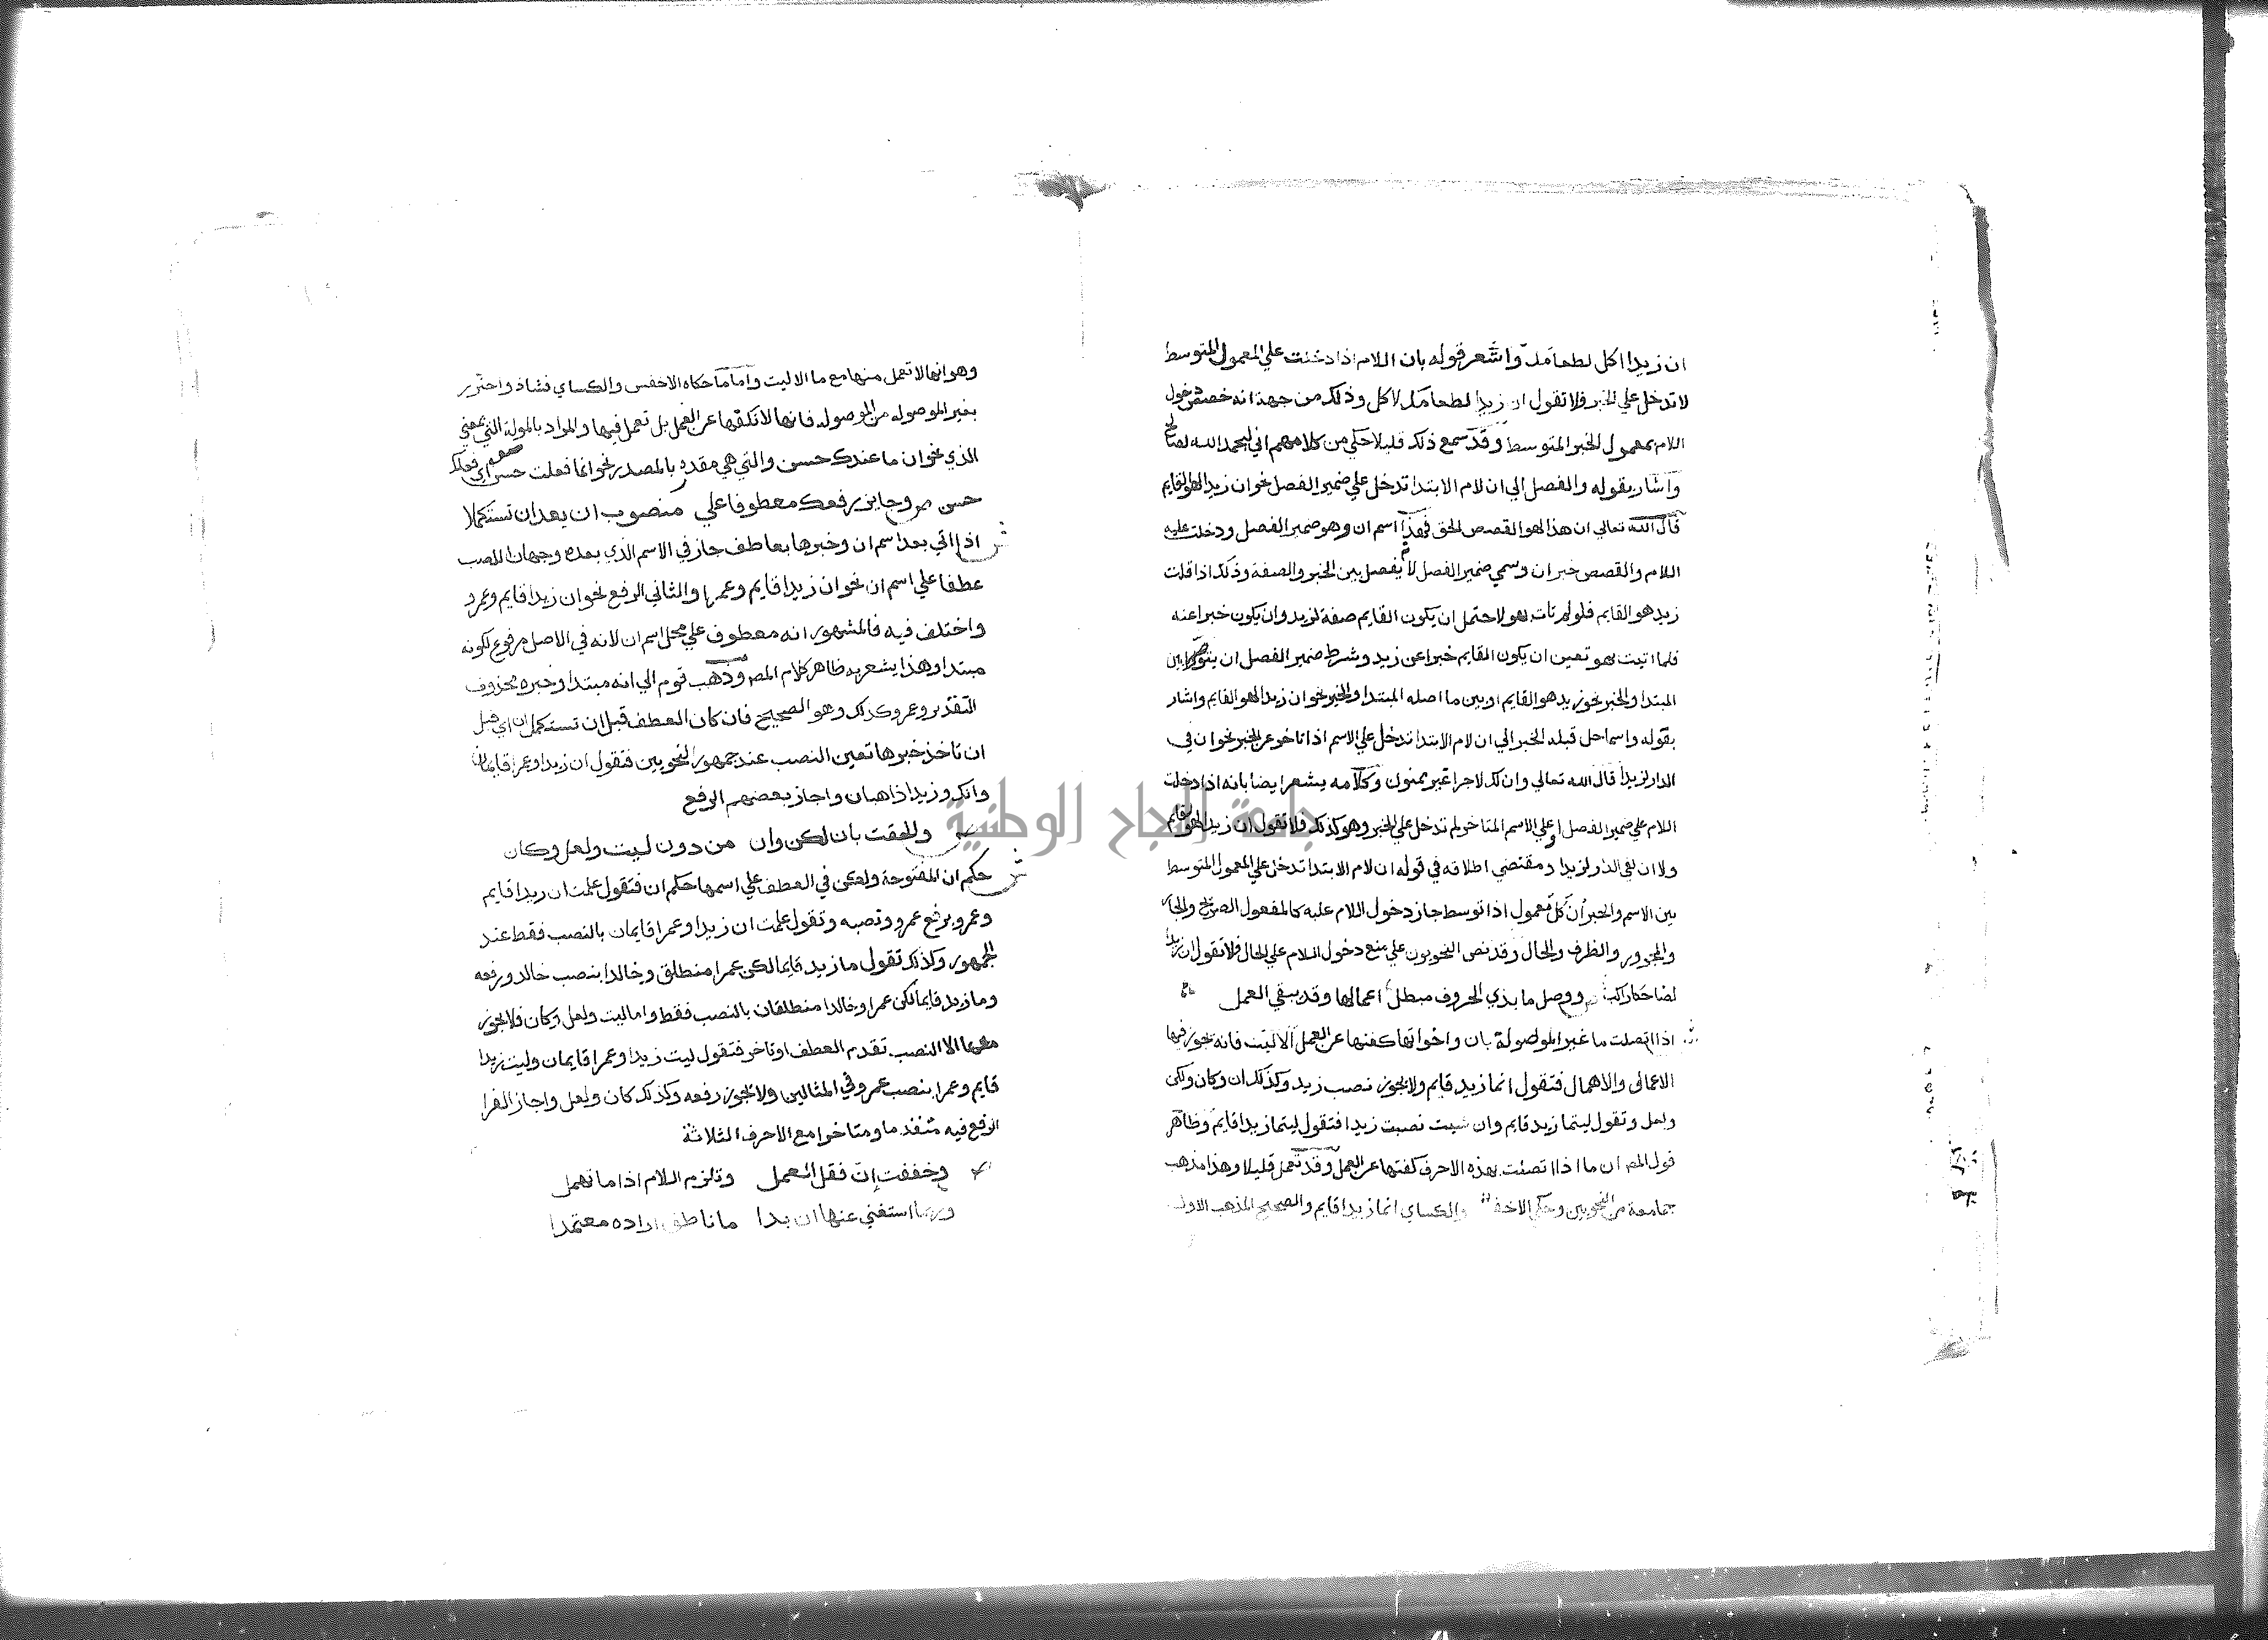 ان زيدا اكل لطعامك واشعر قوله بان اللام اذا دخلت علي المعمول المتوسط
لا تدخل علي الخبر فلا تقول ان زيدا لطعامك لاكل وذلك من جهة انه خصص دخول
اللام بمعمول الخبر المتوسط وقد سمع ذلك قليلا حكي من كلامهم اني لبحمد الله لصالح
واشار بقوله والفصل الي ان لام الابتدا تدخل علي ضمير الفصل نحو ان زيدا لهو القايم
قال الله تعالي ان هذا لهو القصص الحق فهذا اسم ان وهو ضمير الفصل ودخلت عليه
اللام والقصص خبر ان وسمي ضمير الفصل لانه يفصل بين الخبر والصفة وذلك اذا قلت
زيد هو القايم فلو لم تات بهو لاحتمل ان يكون القايم صفة لزيد وان يكون خبرا عنه
فلما اتيت بهو تعين ان يكون القايم خبرا عن زيد وشرط ضمير الفصل ان يتوسط بين
المبتدا والخبر نحو زيد هو القايم او بين ما اصله المبتدا والخبر نحو ان زيدا لهو القايم واشار
بقوله واسما حل قبله الخبر الي ان لام الابتدا تدخل علي الاسم اذا تاخر عن الخبر نحو ان في
الدار لزيدا قال الله تعالي وان لك لاجرا غير ممنون وكلامه يشعر ايضا بانه اذا دخلت
اللام علي ضمير الفصل او علي الاسم المتاخر لم تدخل علي الخبر وهو كذلك فلا تقول ان زيدا لهو لقايم
ولا ان لفي الدار لزيدا ومقتضي اطلاقه في قوله ان لام الابتدا تدخل علي المعمول المتوسط
بين الاسم والخبر ان كل معمول اذا توسط جاز دخول اللام عليه كالمفعول الصريح والجار
والمجرور والظرف والحال وقد نص النحويون علي منع دخول اللام علي الحال فلا تقول ان زيدا
لضاحكا راكب ص ووصل ما بذي الحروف مبطل اعمالها وقد يبقي العمل
ش اذا اتصلت ما غير الموصولة بان واخواتها كفتها عن العمل الا ليت فانه يجوز فيها
الاعمال والاهمال فتقول انما زيد قايم ولا يجوز نصب زيد وكذلك ان وكان ولكن
ولعل وتقول ليتما زيد قايم وان شيت نصبت زيدا فتقول ليتما زيدا قايم وظاهر
قول المص ان ما اذا اتصلت بهذه الاحرف كفتها عن العمل وقد تعمل قليلا وهذا مذهب
جماعة من النحويين وحكي الاخفش والكساي انما زيدا قايم والصحيح المذهب الاول
وهو انها لا تعمل منها مع ما الا ليت واما ما حكاه الاخفش والكساي فشاذ واحترز
بغير الموصوله من الموصوله فانها لا تكفها عن العمل بل تعمل فيها والمراد بالموصولة التي بمعني
الذي نحو ان ما عندك حسن والتي هي مقدرة بالمصدر نحو انما فعلت حسن اي فعلك
حسن ص وجايز رفعك معطوفا علي منصوب ان بعد ان تستكملا
ش اذا اتي بعد اسم ان وخبرها بعاطف جاز في الاسم الذي بعده وجهان النصب
عطفا علي اسم ان نحو ان زيدا قايم وعمرا والثاني الرفع نحو ان زيدا قايم وعمرو
واختلف فيه فالمشهور انه معطوف علي محل اسم ان لانه في الاصل مرفوع لكونه
مبتدا وهذا يشعر به ظاهر كلام المص وذهب قوم الي انه مبتدا وخبره محذوف
التقدير وعمرو كذلك وهو الصحيح فان كان العطف قبل ان تستكمل ان اي قبل
ان تاخذ خبرها تعين النصب عند جمهور النحويين فتقول ان زيدا وعمرا قايمان
وانك وزيدا ذاهبان واجاز بعضهم الرفع
ص والحقت بان لكن وان من دون ليت ولعل وكان
ش حكم ان المفتوحة ولكن في العطف علي اسمها حكم ان فتقول علمت ان زيدا قايم
وعمرو برفع عمرو ونصبه وتقول علمت ان زيدا وعمرا قايمان بالنصب فقط عند
الجمهور وكذلك تقول ما زيد قايما لكن عمرا منطلق وخالدا بنصب خالد ورفعه
وما زيد قايما لكن عمرا وخالدا منطلقان بالنصب فقط واما ليت ولعل وكان فلا يجوز
معها الا النصب تقدم العطف او تاخر فتقول ليت زيدا وعمرا قايمان وليت زيدا
قايم وعمرا بنصب عمرو في المثالين ولا يجوز رفعه وكذلك كان ولعل واجاز الفرا
الرفع فيه متقدما ومتاخرا مع الاحرف الثلاثة
ص وخففت ان فقل العمل وتلزم اللام اذا ما تهمل
وربما استغني عنها ان بدا ما ناطق اراده معتمدا
جامعة النجاح الوطنية